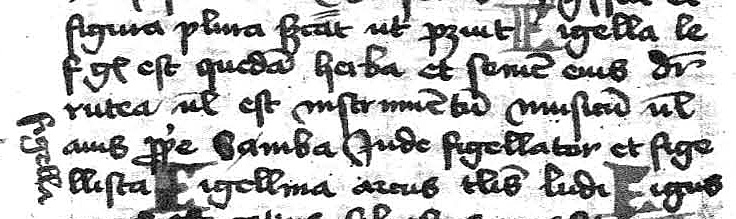 figura plura st̄cat ut pꝫiut Figella le
f gl̄ est quedā herba et semē eius dr̄
rutea ul̄ est instrumētū musicū ul̄
auis ꝓpe Samba Inde figellator et fige
llista Figellina arcus tl̄is ludi Figus
figella